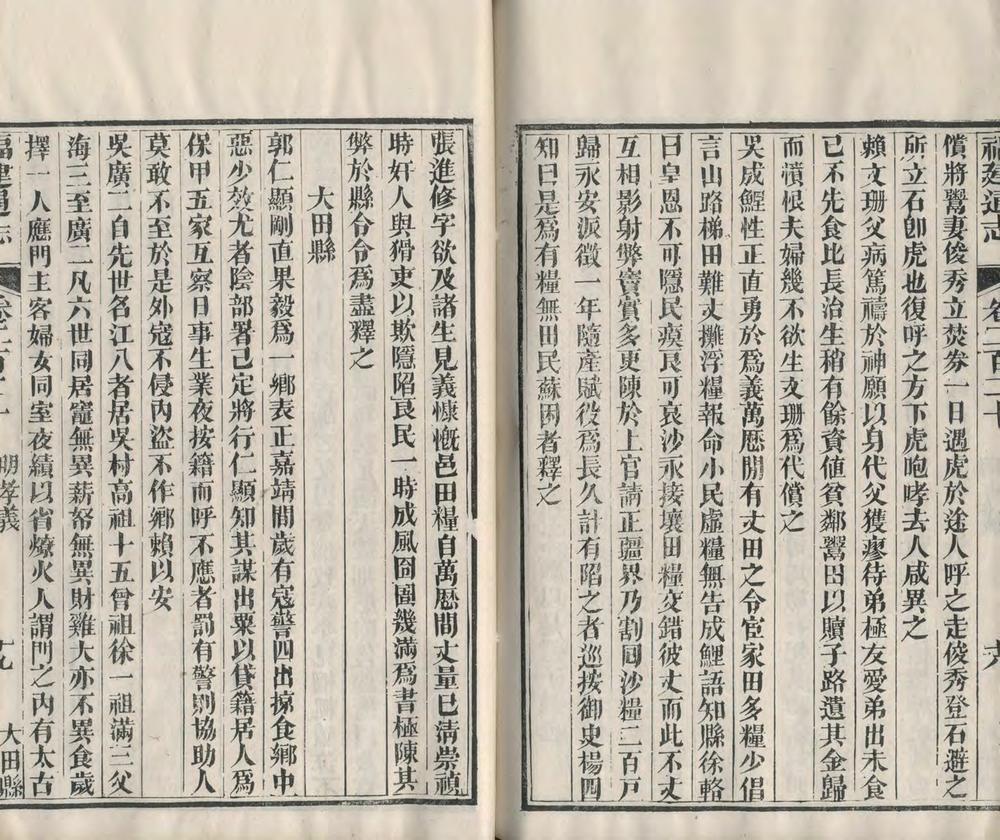 福建通志 卷二百二十 六
償將鬻妻俊秀立焚券一日遇虎於途人呼之走俊秀登石避之
所立石卽虎也復呼之方下虎咆哮去人咸異之
賴文珊父病篤禱於神願以身代父獲瘳待弟極友愛弟出未食
己不先食比長治生稍有餘資値貧鄰鬻田以贖子路遺其金歸
而憤恨夫婦幾不欲生文珊爲代償之
吳成鯉性正直勇於爲義萬歷閒有丈田之令宦家田多糧少倡
言山路梯田難丈攤浮糧報命小民虛糧無告成鯉語知縣徐輅
曰皇恩不可隱民瘼良可哀沙永接壤田糧交錯彼丈而此不丈
互相影射弊竇實多更陳於上官請正疆界乃割回沙糧二百戸
歸永安派徵一年隨產賦役爲長久計有陷之者巡按御史楊四
知曰是爲有糧無田民蘇困者釋之
張進修字欲及諸生見義慷慨邑田糧自萬歷間丈量已淸崇禎
時奸人與猾吏以欺隱陷良民一時成風囹圄幾滿爲書極陳其
弊於縣台令爲盡釋之
大田縣
郭仁顯剛直果毅爲一鄉表正嘉靖間歲有寇警四出掠食鄉中
惡少效尤者陰部署已定將行仁顯知其謀出粟以貸籍居人爲
保甲五家互察日事生業夜按籍而呼不應者罰有警則協助人
莫敢不至於是外寇不侵內盜不作鄉賴以安
吳廣二自先世名江八者居吳村高祖十五曾祖徐一祖滿三父
海三至廣二凡六世同居竈無異薪帑無異財雞犬亦不異食歲
擇一人應門主客婦女同室夜績以省燎火人謂門之內有太古
福建通志 卷二百二十 明孝義 九 大田縣